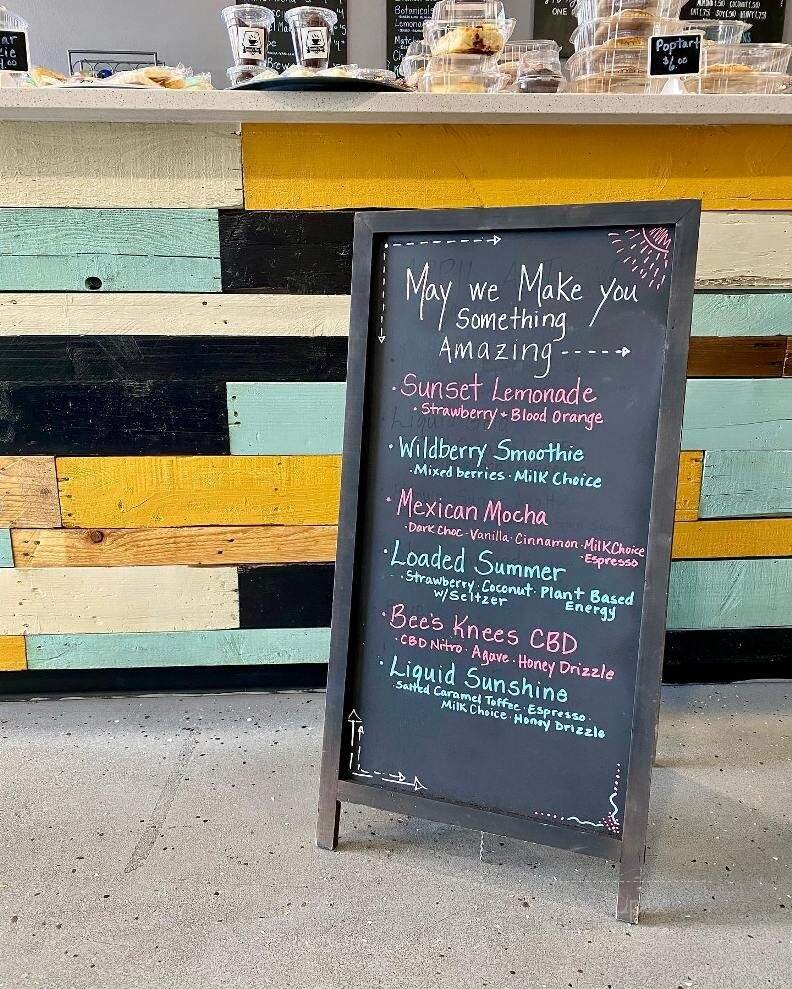 Botanicals
Lemona
Matc
ONE
ALMOND(.50) COCONUT(.50)
OAT(.75) SOY(.50)
Poptart
$6.00
May we Make you
Something
Amazing
· Sunset Lemonade
· Strawberry + Blood Orange
· Wildberry Smoothie
· Mixed berries · Milk Choice
· Mexican Mocha
· Dark Choc · Vanilla · Cinnamon · Milk Choice
· Espresso
· Loaded Summer
· Strawberry · Coconut · Plant Based
w/Seltzer Energy
· Bee's Knees CBD
· CBD Nitro · Agave · Honey Drizzle
· Liquid Sunshine
· Salted Caramel Toffee · Espresso ·
Milk Choice · Honey Drizzle